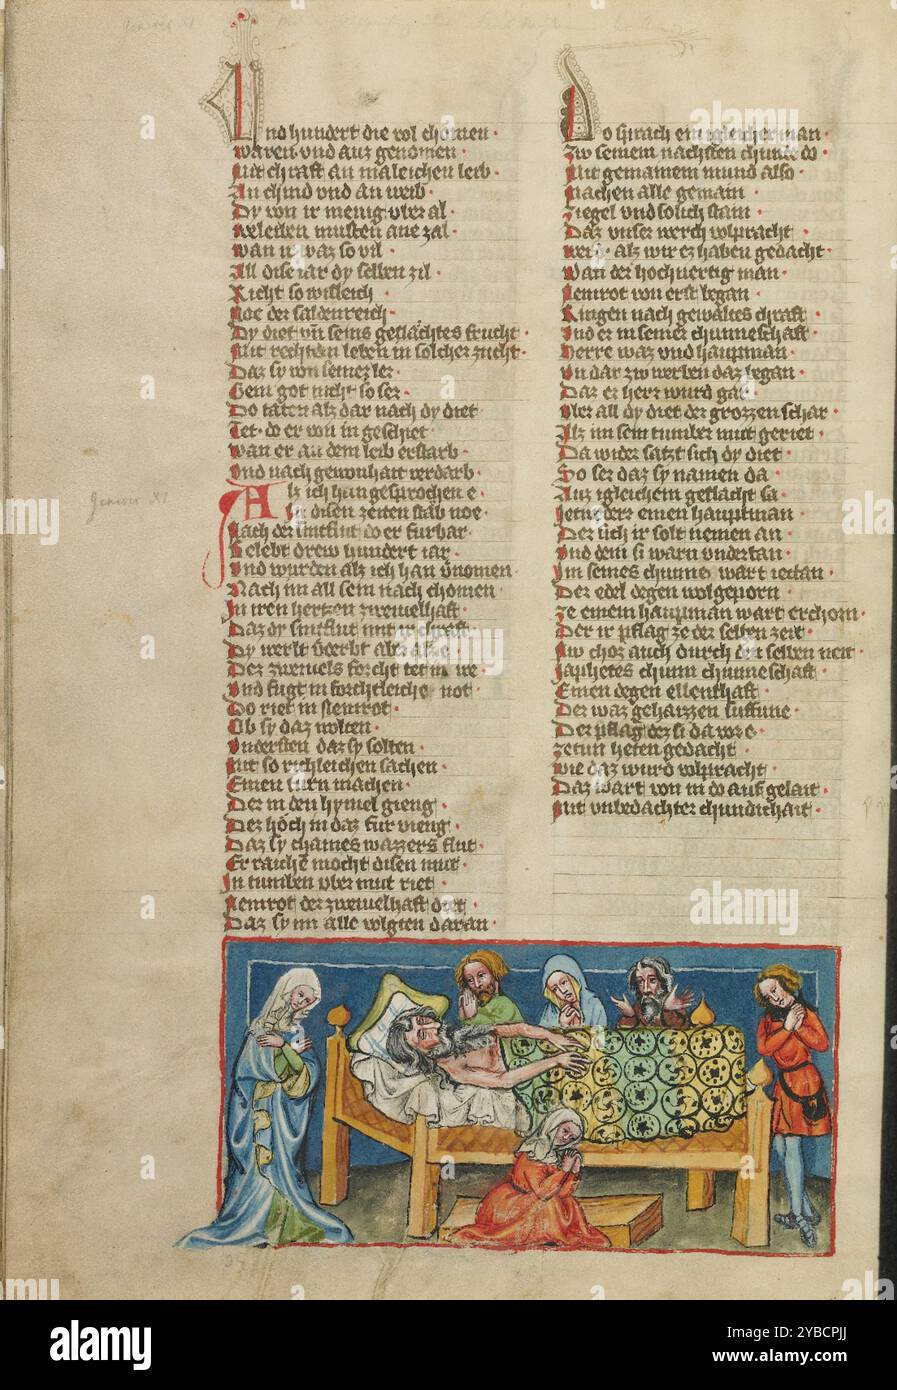 Und hundert die vol chomen
waren vnd auz genomen
Mit chrafft an manleichen leib
An chind vnd an weib
Dy von ir menig vber al
Beleiben musten ane zal
wan it waz so vil
All dise iar dy selben zil
Richt so wisleich
Noe der saldenreich
Dy diet vnd seins geslachtes frucht
Mit rechtem leben in solcher zucht
Daz sy von seiner ler
Gein got nicht so ser
Do taten alz dar nach dy diet
Tet do er von in geschiet
wan er an dem leib erstarb
Vnd nach gewonhait verdarb
Alz ich han gesprochen e
In disen zeiten starb noe
Nach der sintflut do er furbar
Gelebt drew hundert iar
Vnd wurden alz ich han vernomen
Nach im all sein nach chomen
In iren hertzen zweiuelhaft
Daz dy sintflut mit ir chraft
Dy werlt verderbt aber als e
Der zweiuels forcht tet in we
Vnd fugt in forchtleiche not
Do riet in Nemrot
Ob sy daz wolten
Vndersten daz sy solten
Mit so richleichen sachen
Einen turn machen
Der in den hymel gieng
Der hoch in daz fur vieng
Daz sy chaines wazzers flut
Erraichen mocht disen mut
In tumben vber mut riet
Nemrot der zweiuelhaft diet
Daz sy im alle volgten daran
Do sprach ein igleicher man
Zw seinem nachsten chunne do
Mit gemainem mund also
Machen alle gemain
Ziegel vnd solich stain
Daz vnser werch volpracht
werd alz wir ez haben gedacht
Wan der hochuertig man
Nemrot von erst began
Ringen nach gewaltes chraft
Vnd er in seiner chunneschaft
Herre waz vnd haupman
Vn dar zw werben daz began
Daz er herr wurd gar
Vber all dy diet der grozzen schar
Alz im sein tumber mut geriet
Da wider satzt sich dy diet
So ser daz sy namen da
Auz igleichem geslacht sa
Jetweders einen hauptman
Der sich ir solt nemen an
Vnd dem si warn vndertan
Im seines chunnes wart iectan
Der edel degen wolgeporn
Ze einem haupman wart erchorn
Der ir pflag ze der selben zeit
Aw choz auch durch den selben neit
Japhetes chunn chunneschaft
Einen degen ellenthaft
Der waz gehaizzen suffune
Der pflag der si da vor e
zetun heten gedacht
wie daz wurd volpracht
Daz wart von in do auf gelait
Mit vnbedachter chundichait
Genesis XI
alamy
Image ID: 2YBCPJJ
www.alamy.com